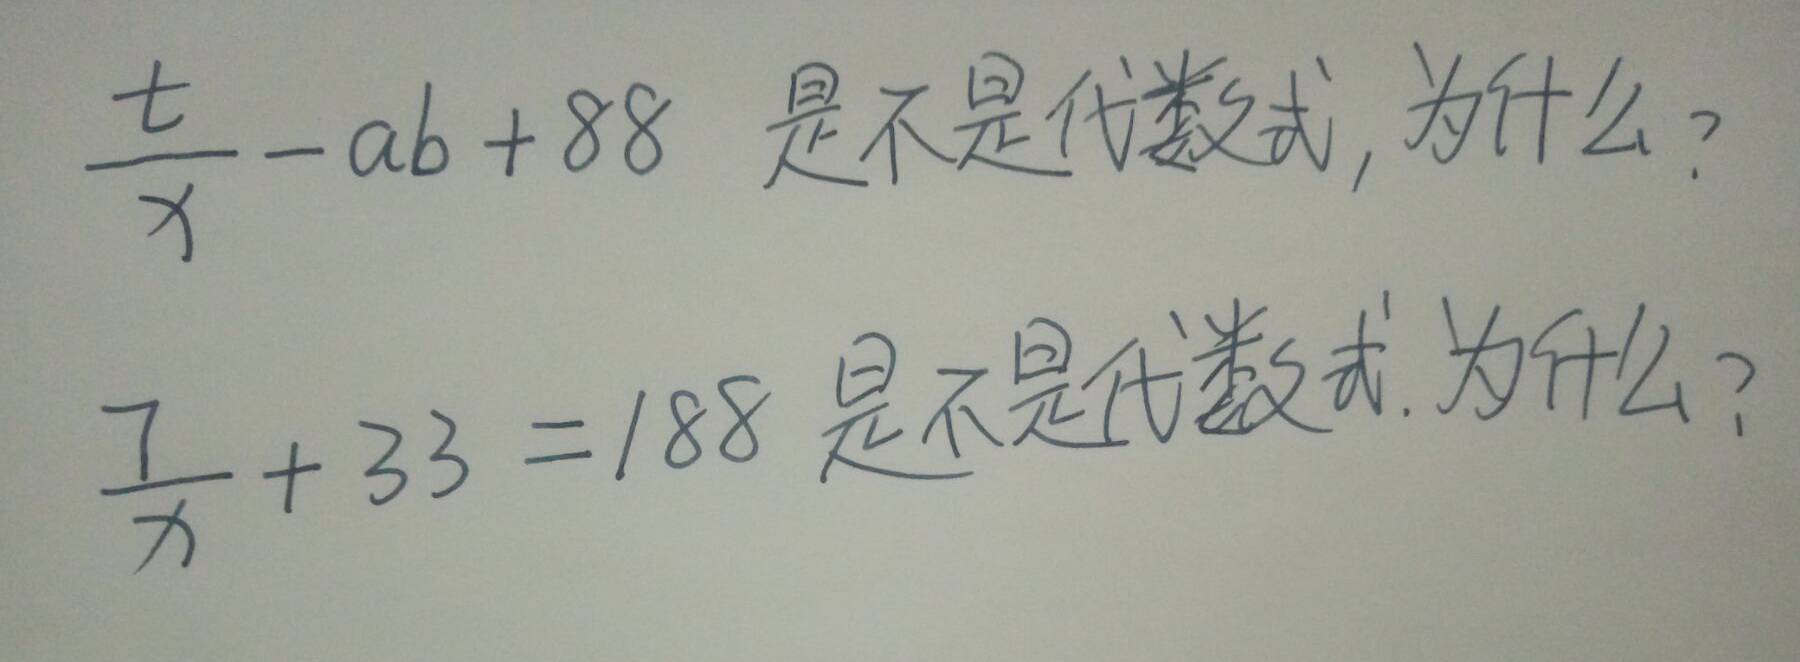 t/x - ab + 88 是不是代数式, 为什么?
7/x + 33 = 188 是不是代数式. 为什么?